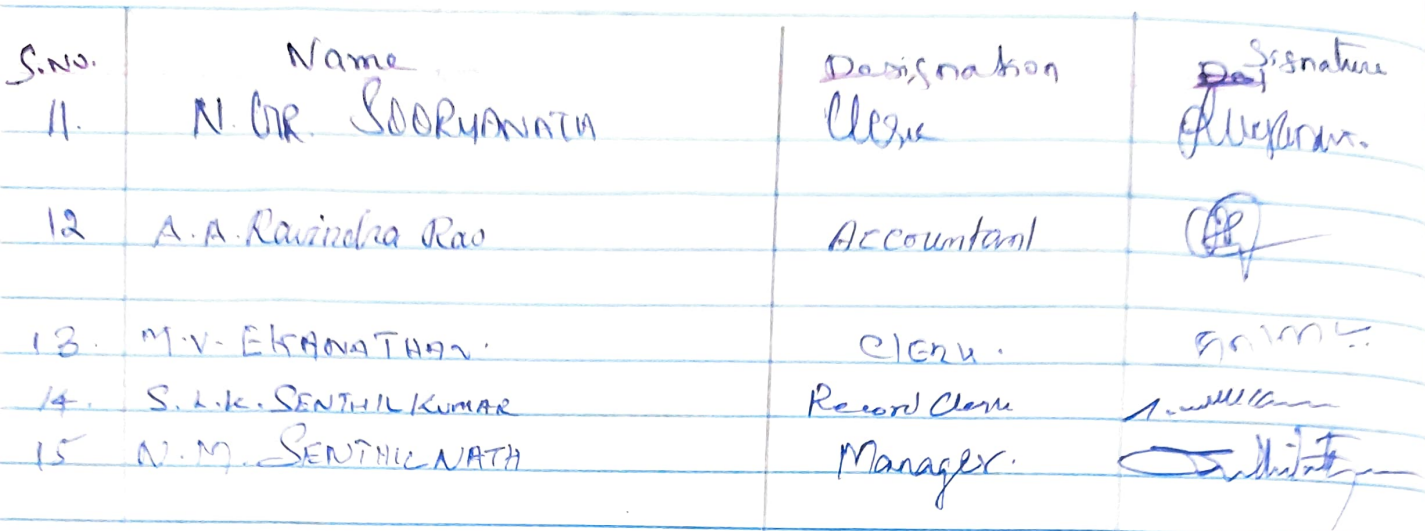 S.No. Name Designation Signature
11. N. GR. SOORYANATH Clerk
12 A.A. Ravindra Rao Accountant
13. M.V. EKANATHAN. Clerk.
14. S.L.K. SENTHIL KUMAR Record Clerk
15 N.M. SENTHILNATH Manager.